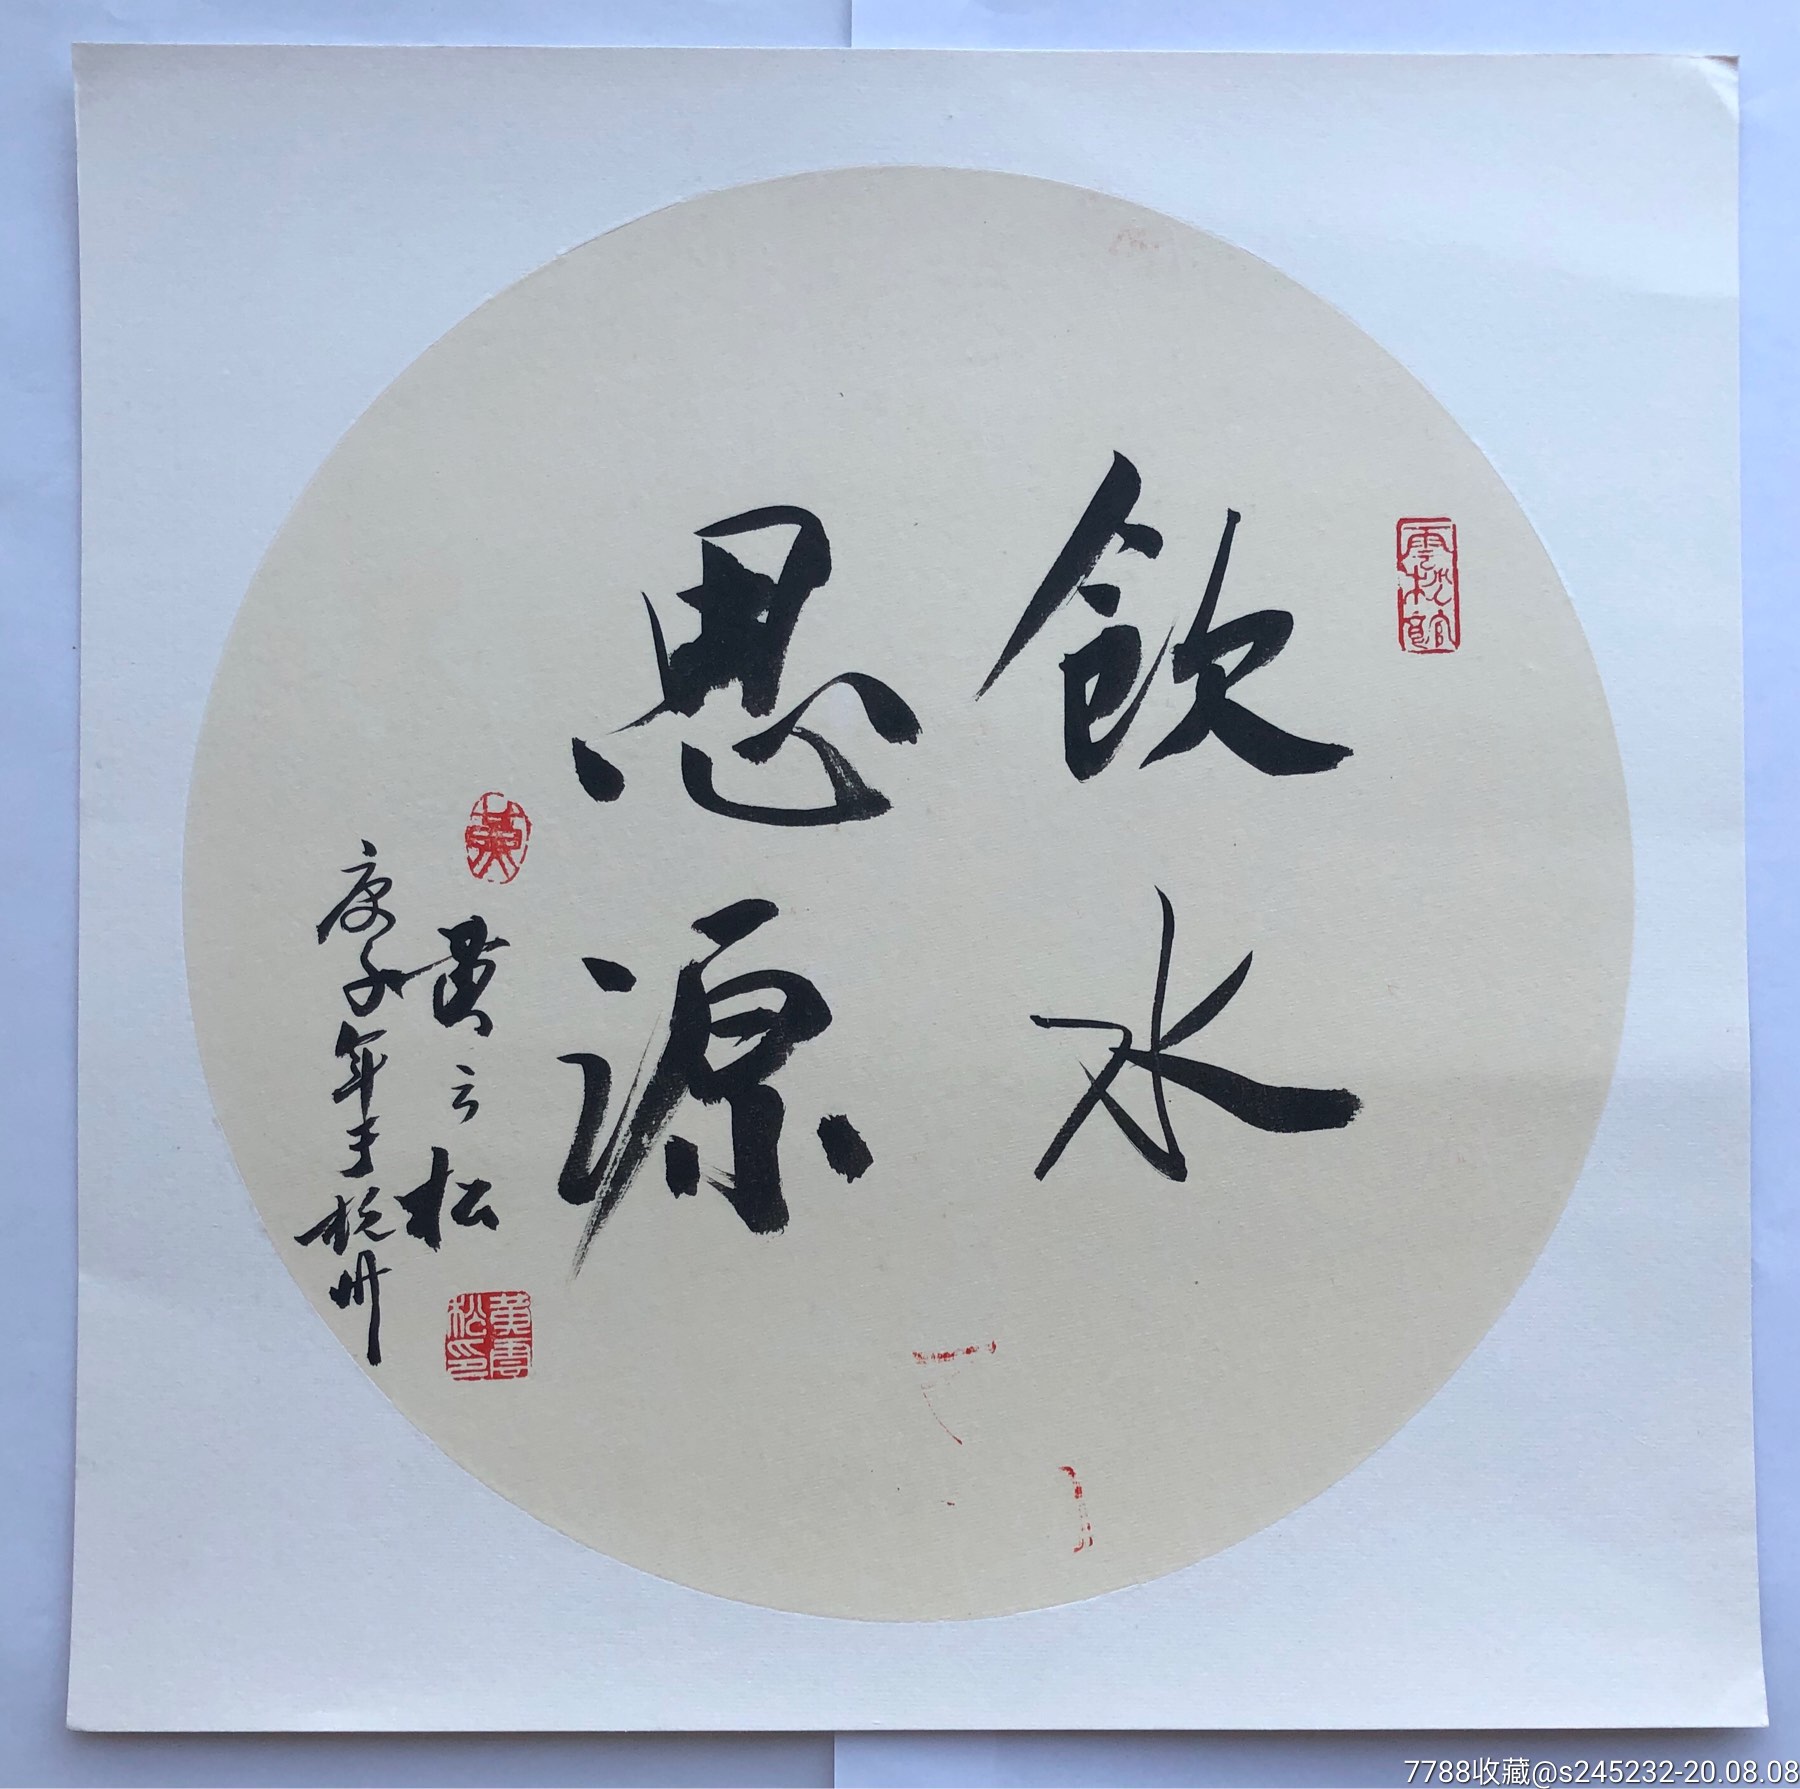 飲水
思源
黄云松
庚子年于杭州
雲松館
黄
黄雲松印
7788收藏@s245232-20.08.08